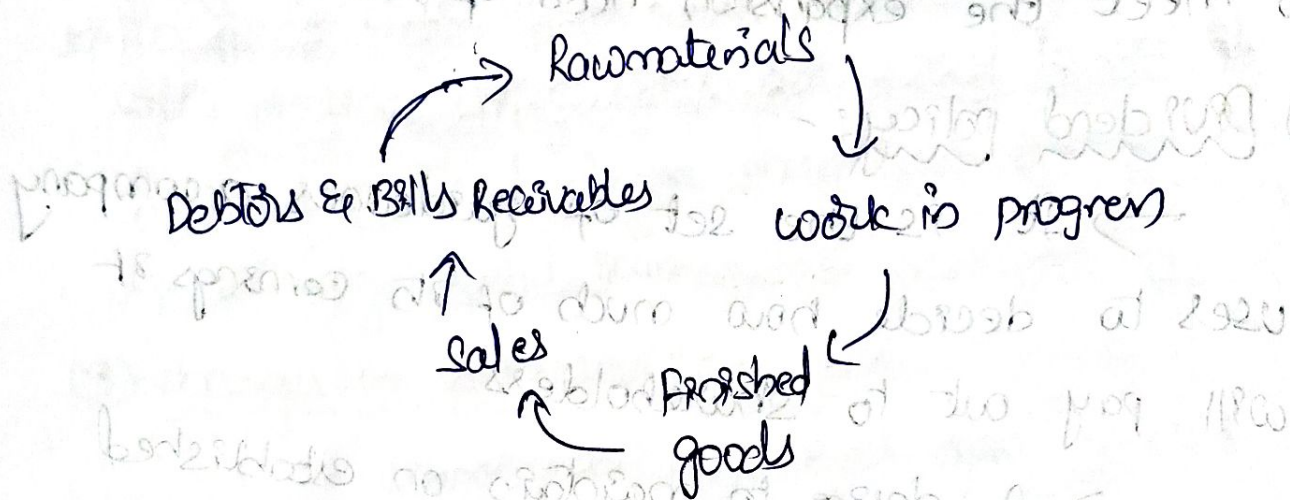 Rawmaterials
Debtors & Bills Receivables
work in progress
Sales
Finished
goods